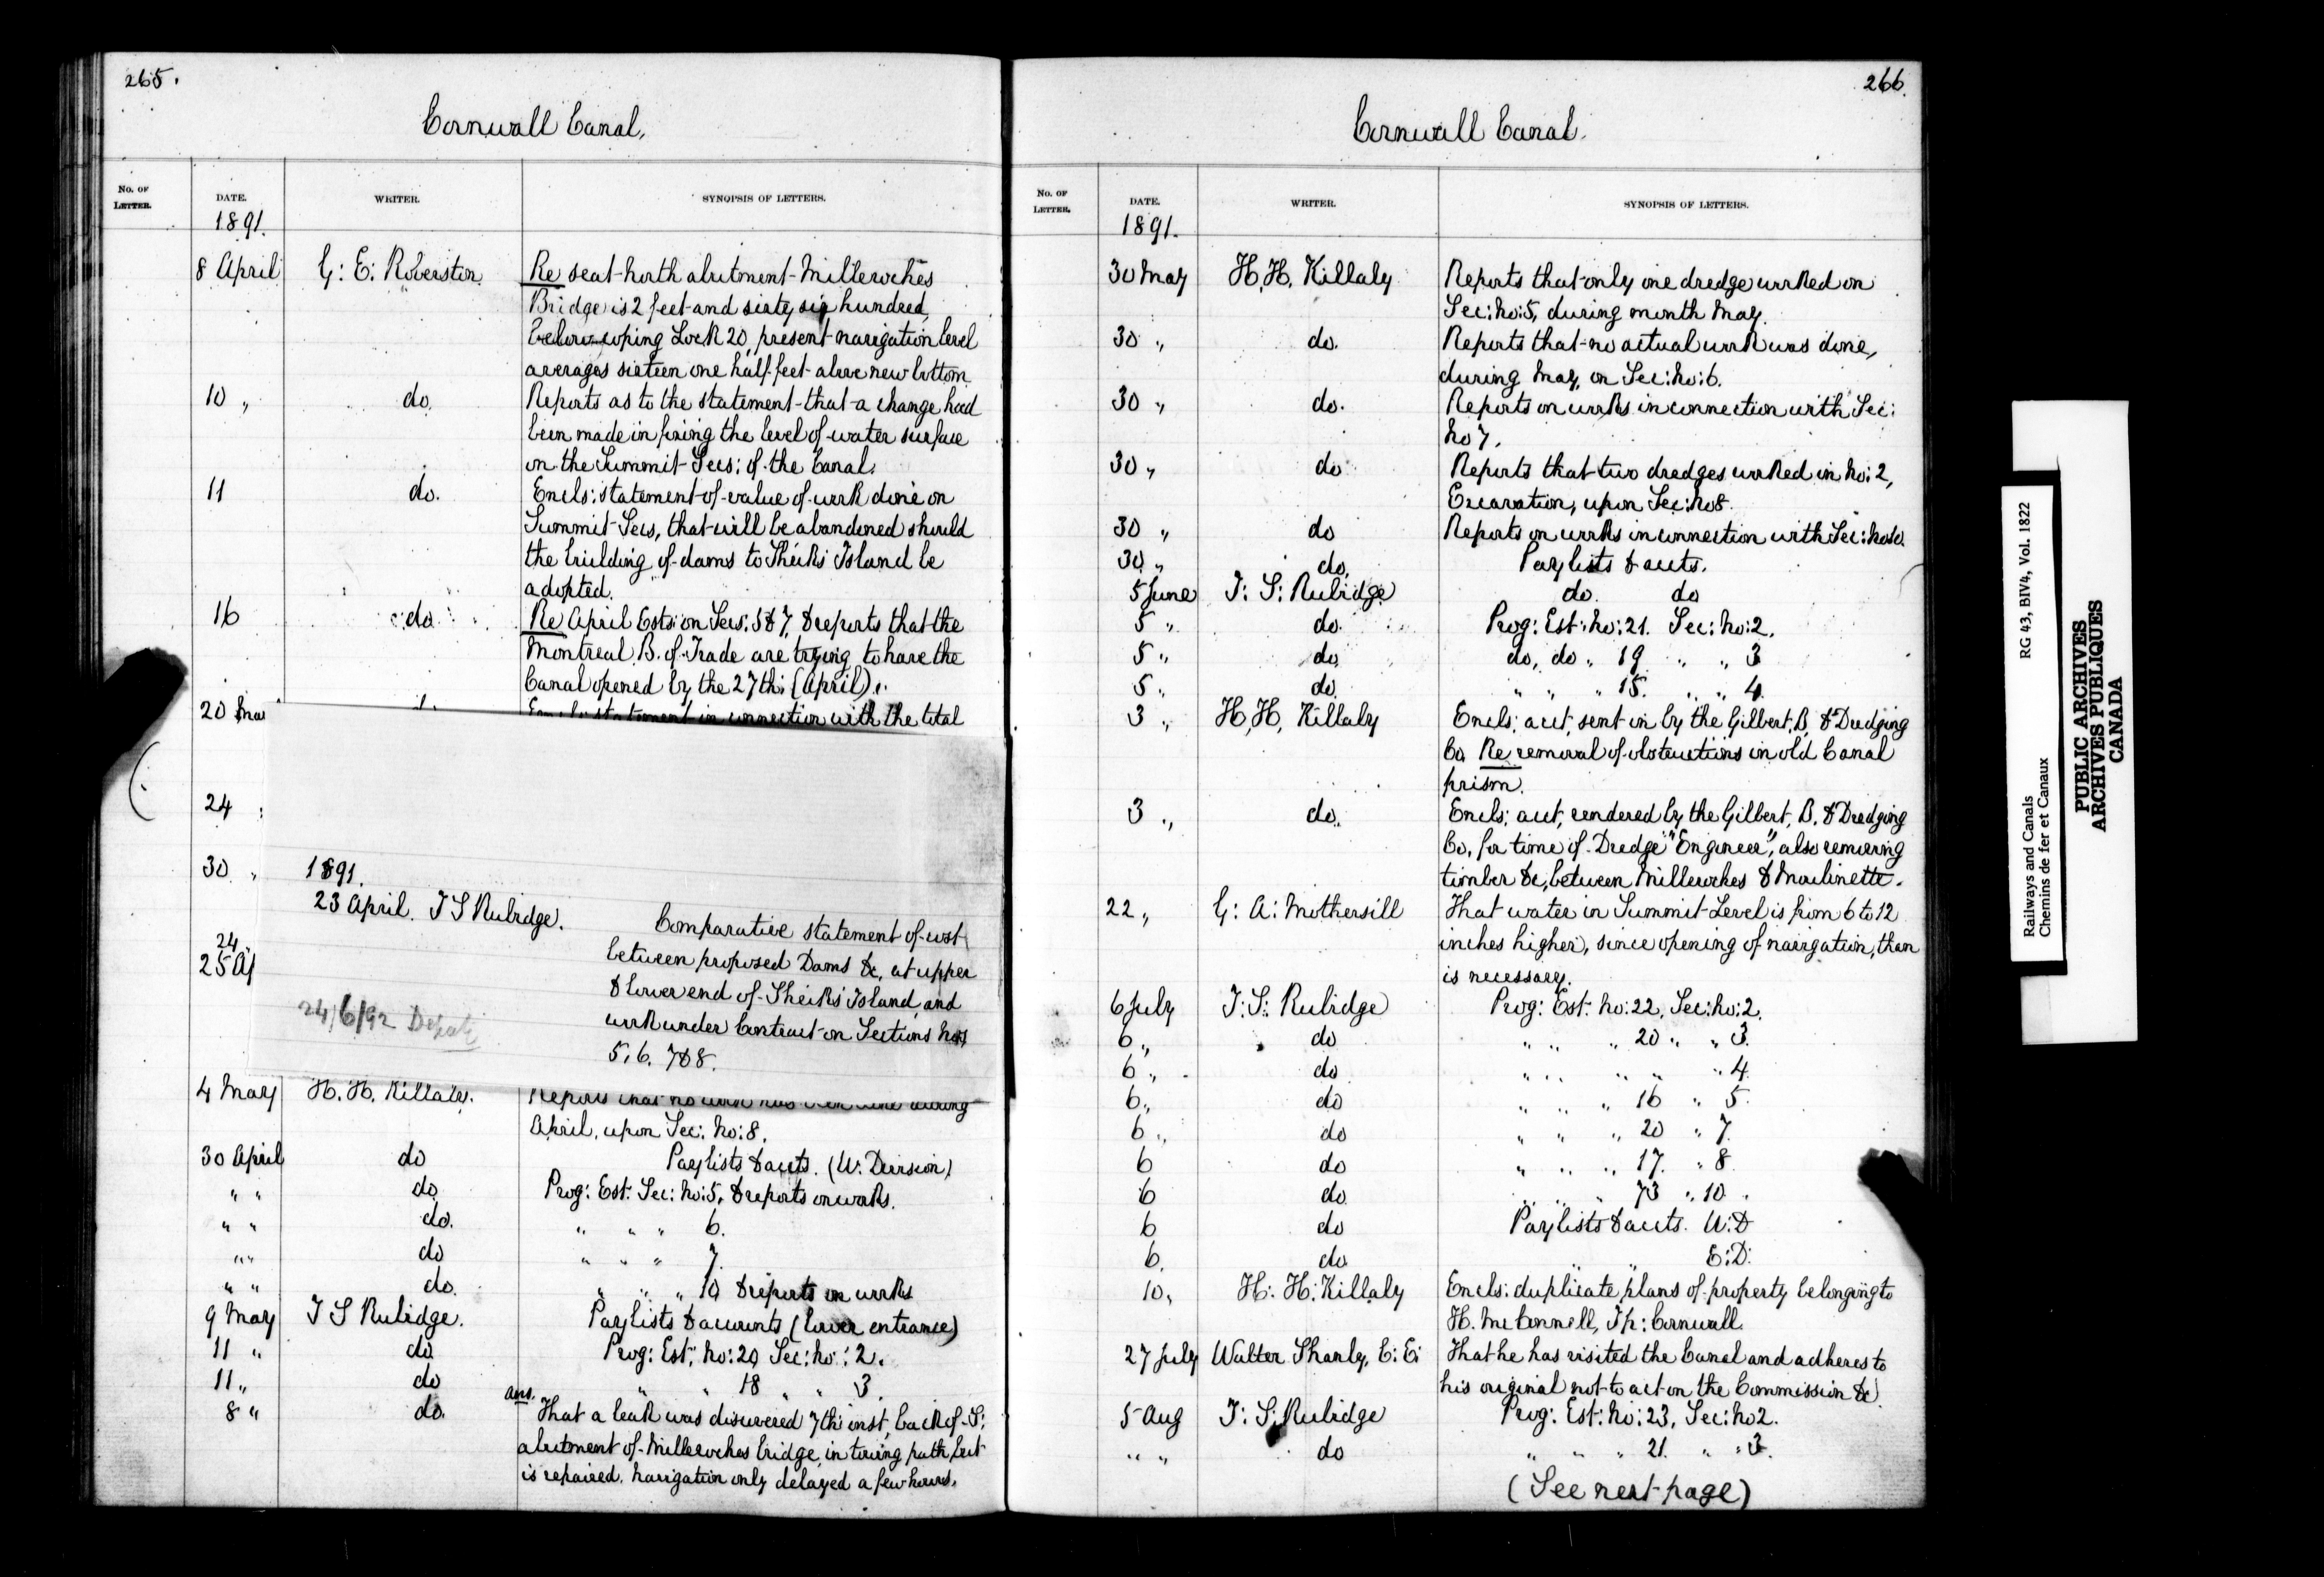 265.
Cornwall Canal,
No. OF LETTER.
DATE.
WRITER.
SYNOPSIS OF LETTERS.
1891.
8 April G: E: Roberston Re seat north abutment Milleroches
Bridge is 2 feet and sixty six hundred,
below coping Lock 20, present navigation level
averages sixteen one half feet above new bottom
10 " do. Reports as to the statement that a change had
been made in fixing the level of water surface
on the Summit Secs: of the Canal.
11 do. Encls: statement of value of work done on
Summit Secs, that will be abandoned should
the building of dams to Sheiks Island be
adopted.
16 do Re April Ests: on Secs: 5 & 7, & reports that the
Montreal B. of Trade are trying to have the
Canal opened by the 27th: (April).
20 statement in connection with the total
24
30 "
24
25
1891.
23 April. T S Rubidge. Comparative statement of cost
between proposed Dams &c, at upper
& lower end of Sheiks Island, and
work under Contract on Sections nos
5, 6. 7 & 8.
24/6/92
4 May H. H. Killaly. Reports that no work has been done during
April, upon Sec: No: 8.
30 April do Paylists & accts. (W. Division)
" " do Prog: Est: Sec: No: 5, & reports on works.
" " do. " " " 6.
" " do " " " 7.
" " do. " " " 10, & reports on works
9 May T S Rubidge. Paylists & accounts (lower entrance)
11 " do Prog: Est: No: 20 Sec: No: 2.
11 " do " " 18 " " 3.
ans.
8 " do. That a leak was discovered 7th inst, back of S:
abutment of Milleroches bridge, in towing path, but
is repaired. Navigation only delayed a few hours.
266.
Cornwall Canal.
No. OF LETTER.
DATE.
WRITER.
SYNOPSIS OF LETTERS.
1891.
30 May H. H. Killaly Reports that only one dredge worked on
Sec: No: 5, during month May.
30 " do. Reports that no actual work was done,
during May, on Sec: No: 6.
30 " do. Reports on works in connection with Sec:
No 7.
30 " do Reports that two dredges worked in No: 2,
Excavation, upon Sec: No 8.
30 " do Reports on works in connection with Sec: No 10.
30 " do. Paylists & accts.
5 June T: S: Rubidge do. do
5 " do. Prog: Est: No: 21. Sec: No: 2.
5 " do do, do " 19 " " 3
5 " do " " " 15. " " 4.
3 " H, H, Killaly Encls: acct, sent in by the Gilbert, B, & Dredging
Co, Re removal of obstructions in old Canal
prism.
3 " do. Encls: acct, rendered by the Gilbert, B. & Dredging
Co, for time of Dredge "Engineer", also removing
timber &c, between Milleroches & Moulinette.
22 " G: A: Mothersill That water in Summit Level is from 6 to 12
inches higher, since opening of navigation, than
is necessary.
6 July T: S: Rubidge Prog: Est: No: 22, Sec: No: 2.
6 " do " " " 20 " " 3.
6 " do " " " " " 4.
6 " do " " " 16 " 5.
6 " do " " " 20 " 7.
6 do " " " 17. " 8
6 do " " " 73 " 10 "
6 do Paylists & accts. W: D
6. do " " E: D.
10, H: H: Killaly Encls: duplicate plans of property belonging to
H. McConnell, Tp: Cornwall.
27 July Walter Shanly, C: E: That he has visited the Canal and adheres to
his original not to act on the Commission &c
5 Aug T: S: Rubidge Prog: Est: No: 23, Sec: No 2.
" " do " " " 21. " " 3.
(See next page)
Railways and Canals RG 43, BIV4, Vol. 1822
Chemins de fer et Canaux
PUBLIC ARCHIVES
ARCHIVES PUBLIQUES
CANADA